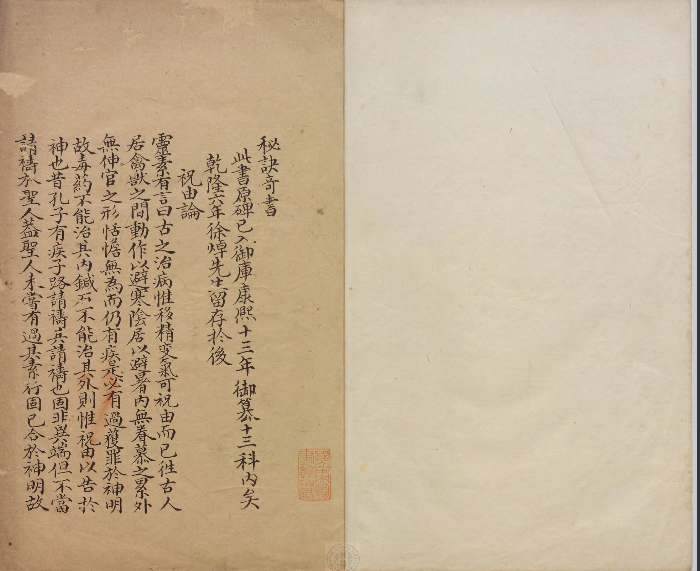 秘訣奇書
此書原碑已入御庫康熙十三年御纂十三科內矣
乾隆六年徐焯先生留存於後
祝由論
靈素有言曰古之治病惟移精变氣可祝由而已徃古人
居禽獸之間動作以避寒陰居以避暑內無眷慕之累外
無伸官之形恬憺無為而仍有疾是必有過獲罪於神明
故毒药不能治其內鍼石不能治其外則惟祝由以告於
神也昔孔子有疾子路請禱其請禱也固非異端但不當
請禱於聖人蓋聖人未嘗有過其素行固已合於神明故